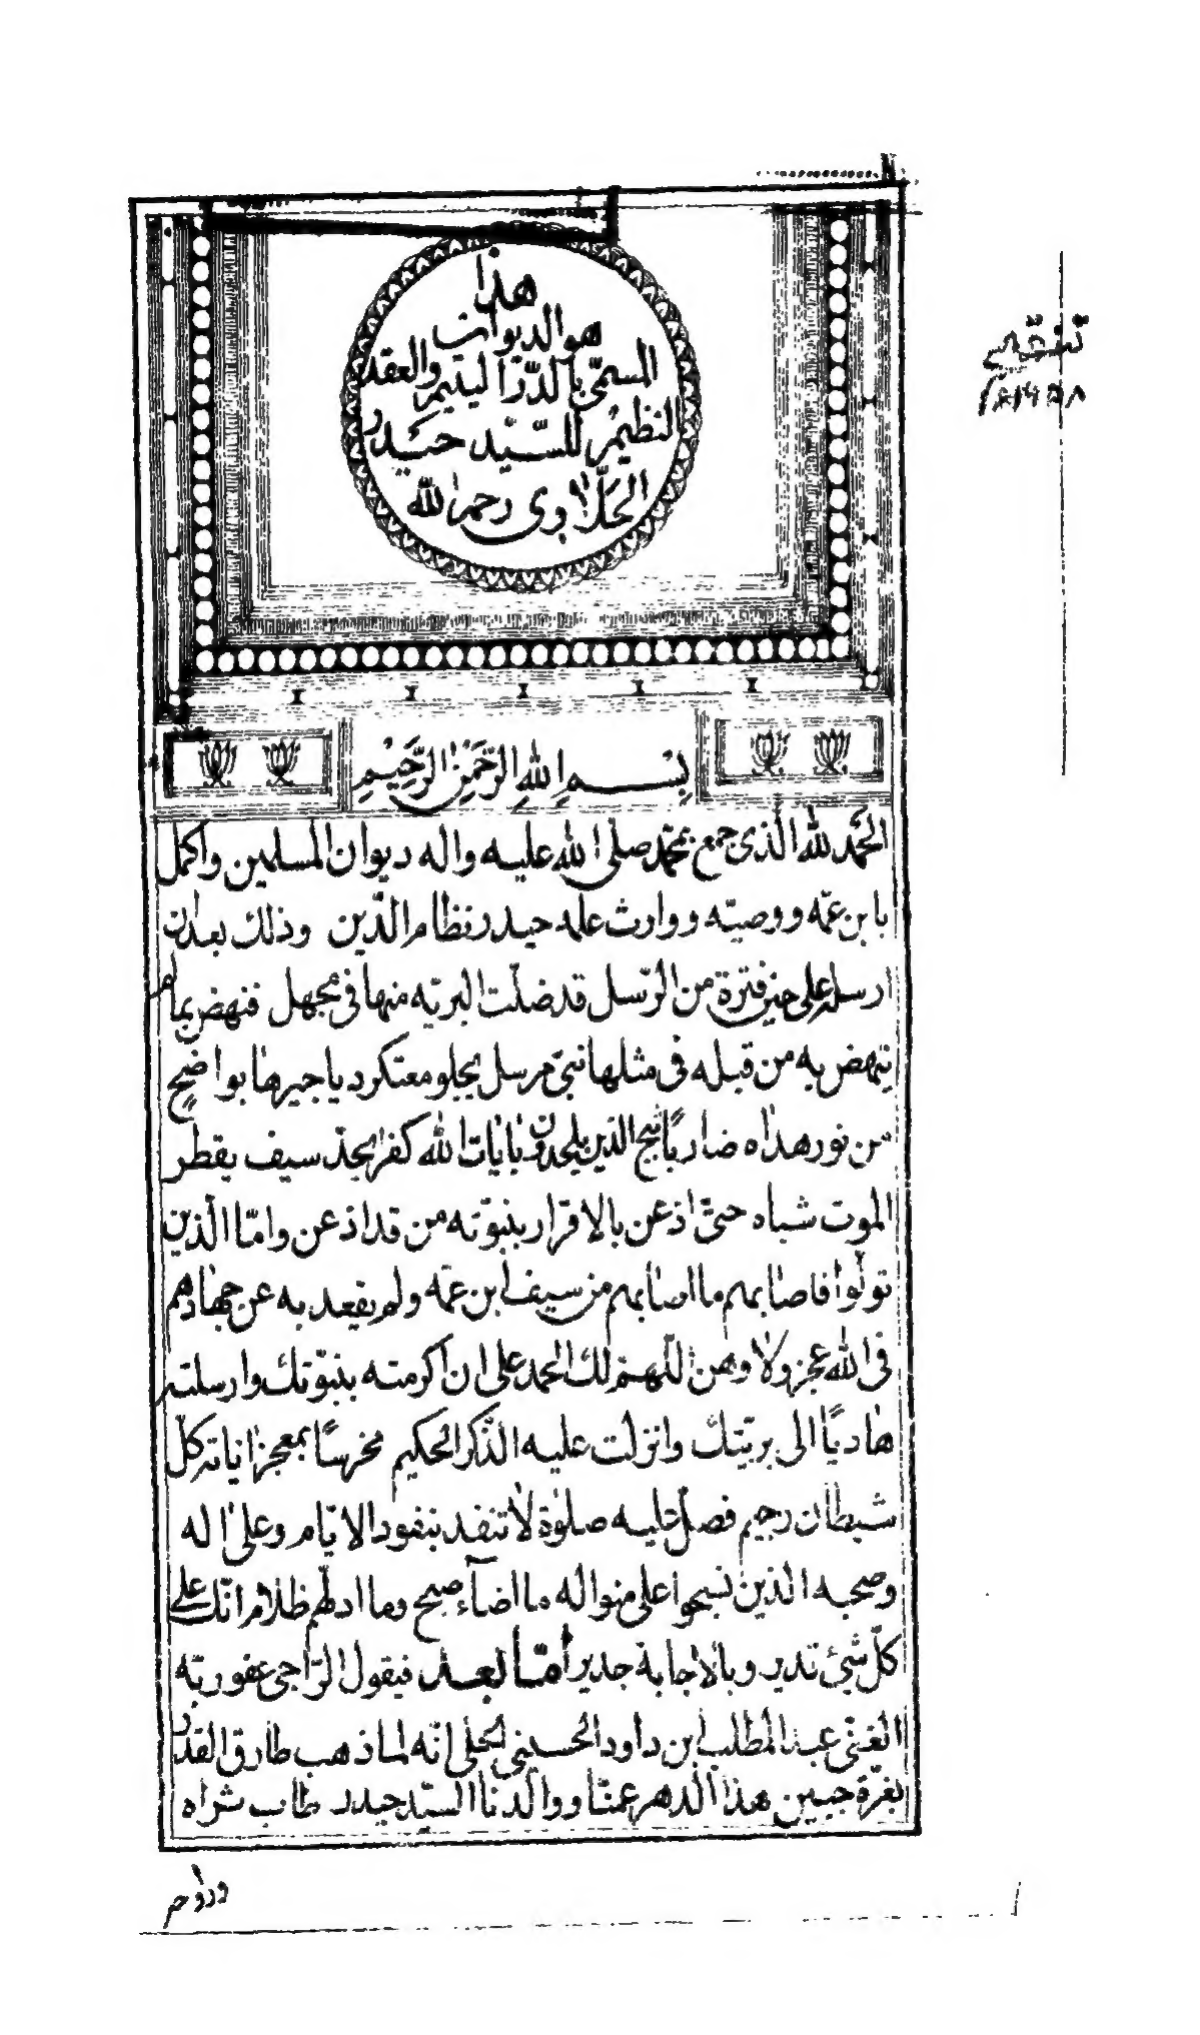 هذا
هو الديوان
المسمّى بالدّر اليتيم والعقد
النظيم للسّيّد حيدر
الحلّاوى رحمه الله
بِسْمِ اللهِ الرَّحْمٰنِ الرَّحِيْمِ
الحَمد لله الّذى جمع بمحمّد صلى الله عليه واله ديوان المسلمين واكمل
بابن عمّه ووصيّه ووارث علمه حيدر نظام الدّين وذلك بعد ان
ارسله على حين فترة من الرّسل قد ضلّت البريّه منها فى مجهل فنهض بما لم
ينهض به من قبله فى مثلها نبىّ مرسل يجلو معتكر دياجيرها بواضحٍ
من نور هداه ضاربًا ثبج الذين يلحدون بايات الله كفرا بحدّ سيف يقطر
الموت شباه حتىّ اذعن بالاقرار بنبوّته من قد اذعن وامّا الّذين
تولّوا فاصابهم ما اصابهم من سيف ابن عمّه ولم يقعد به عن جهادهم
فى الله عجز ولا وهن اللّهمّ لك الحمد على ان اكرمته بنبوّتك وارسلته
هاديًا الى بريّتك وانزلت عليه الذّكر الحكيم مخرسًا بمعجز اياته كلّ
شيطان رجيم فصلّ عليه صلوة لا تنفد بنفود الايّام وعلى اله
وصحبه الذين نسجوا على منواله ما اضآء صبح وما ادلهّم ظلام انّك على
كلّ شئ قدير وبالاجابة جدير امّا بعد فيقول الرّاجى عفو ربّه
الغنى عبد المطلب ابن داود الحسينى الحلى انّه لما ذهب طارق القدر
بغرّة جبين هذا الدهر عمّنا ووالدنا السيّد حيدر طاب ثراه